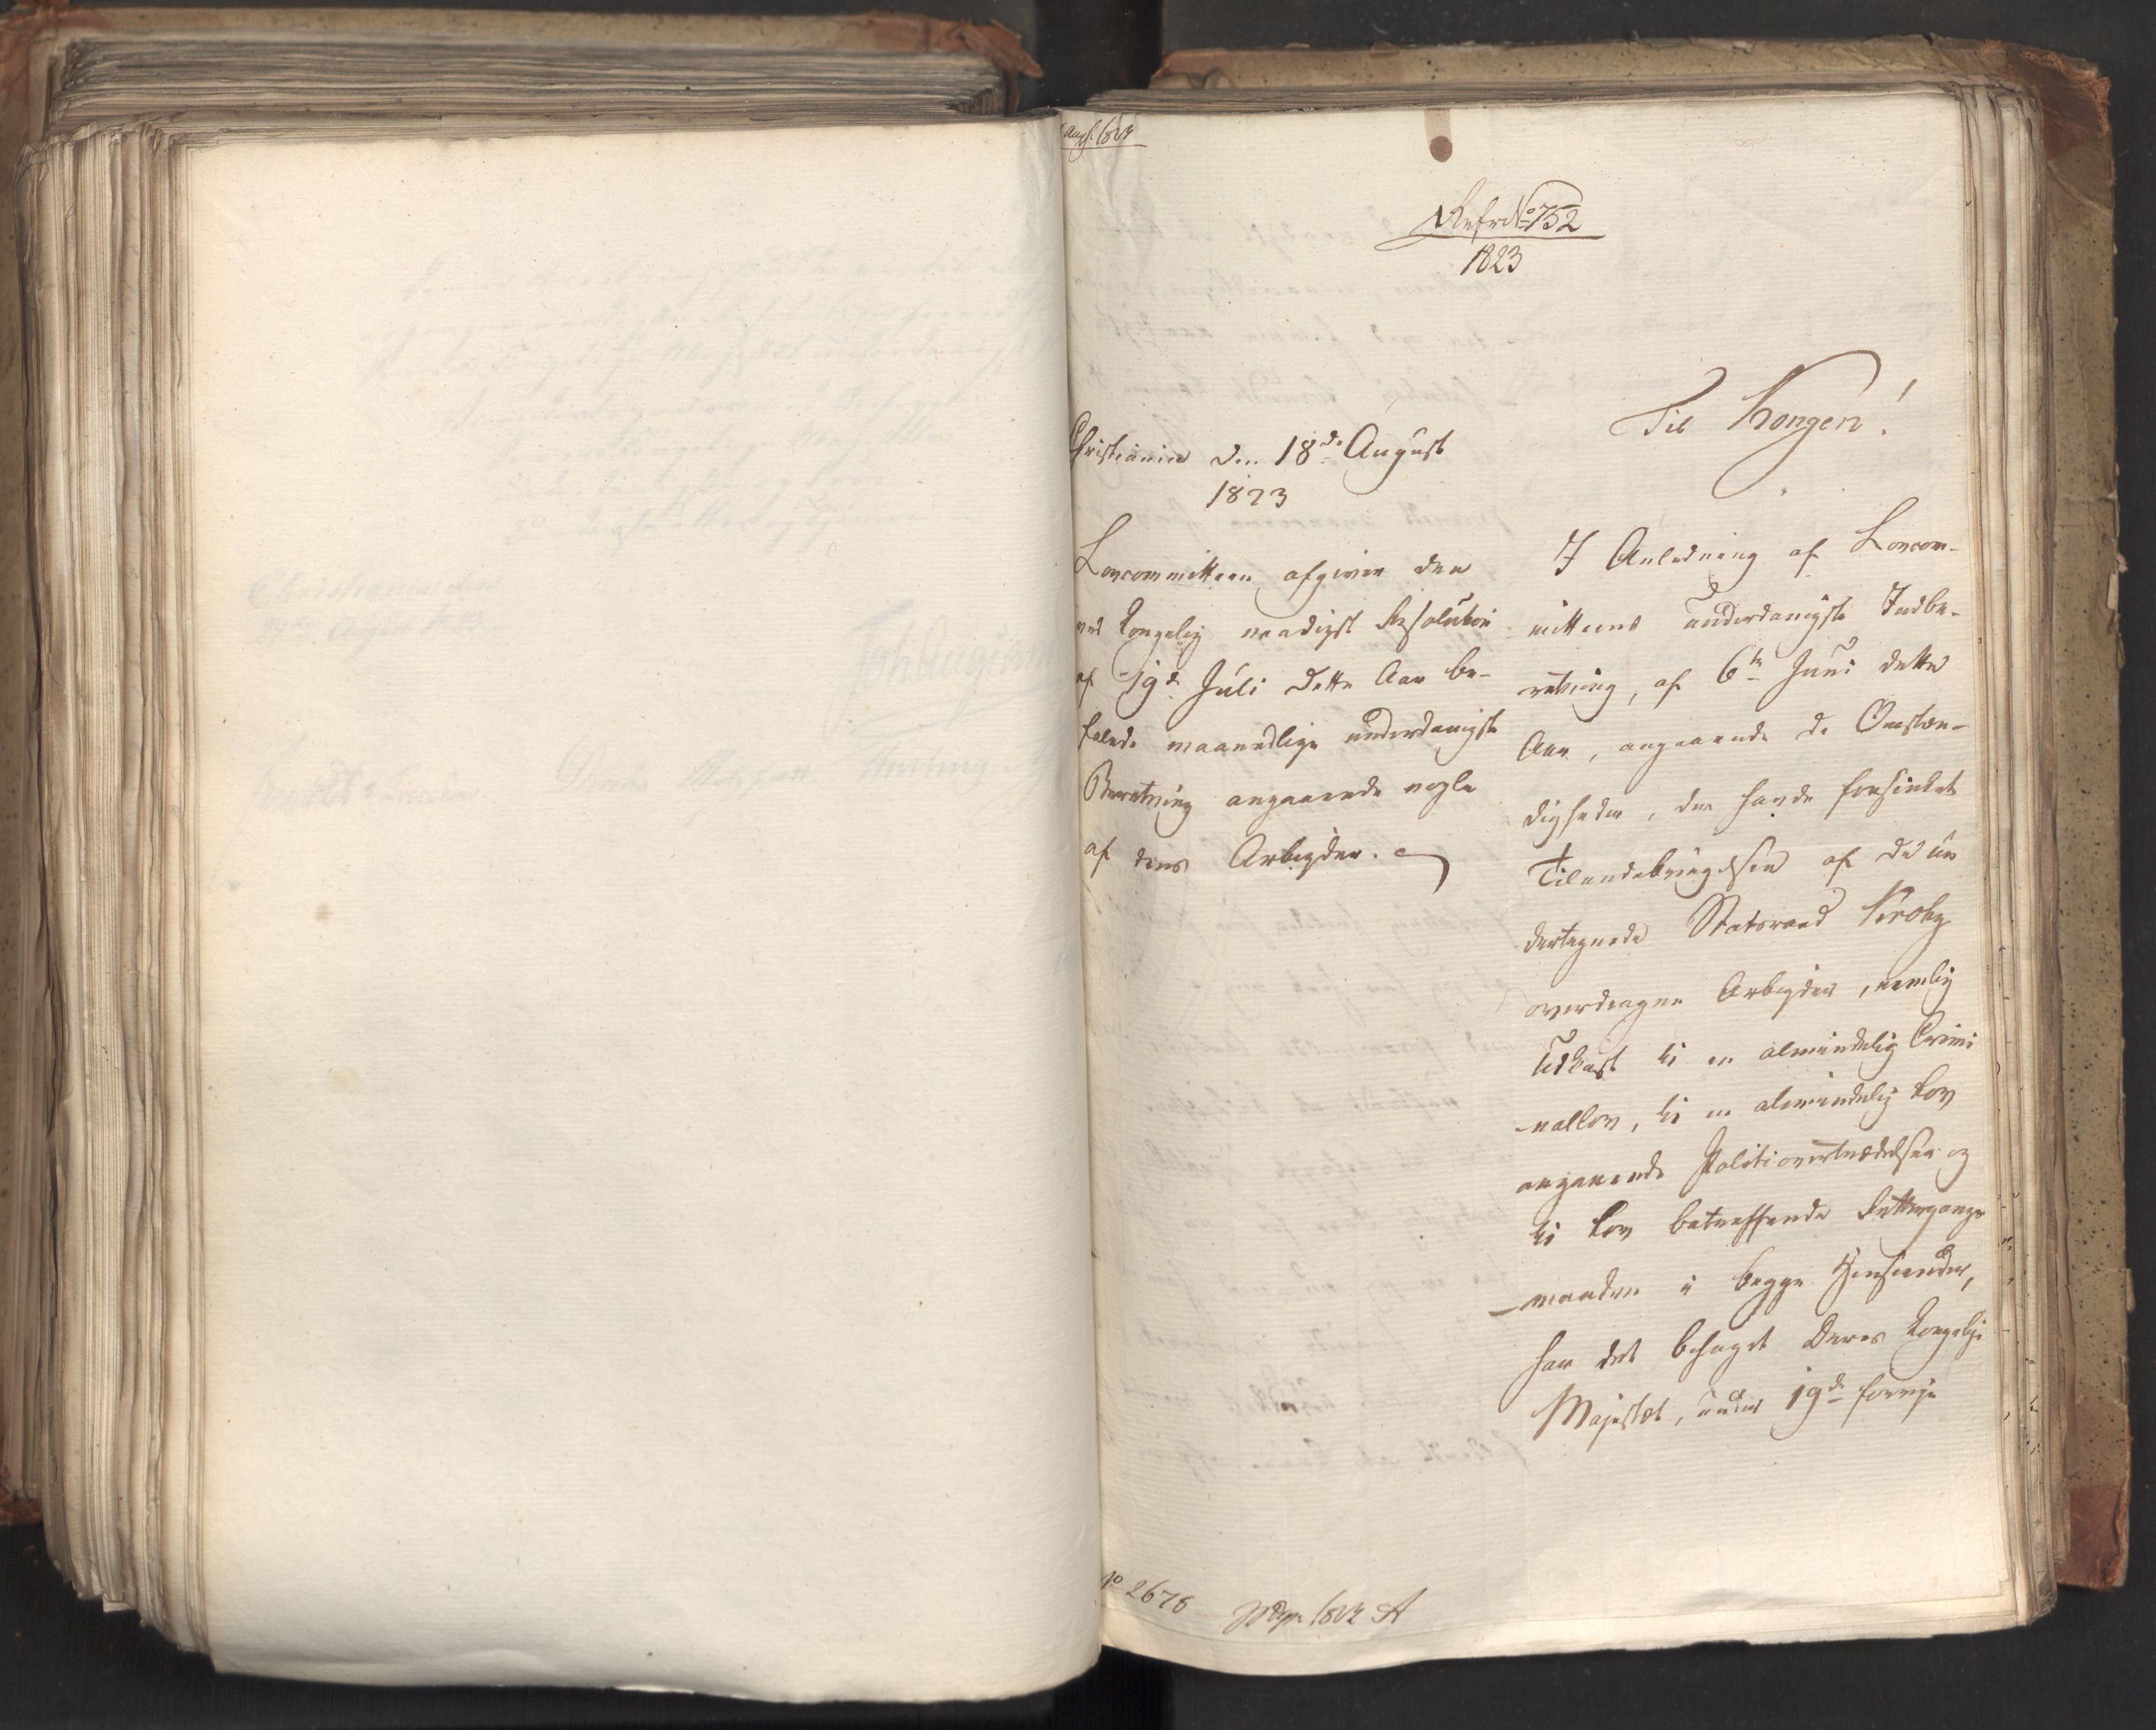 Refr No 752
1823
Til Kongen!
Christiania den 18de August
1823
Lovcommitteen afgiver den
ved Kongelig naadigst Resolution
af 19de Juli dette Aar be-
falede maanedlige underdanigste
Beretning angaaende nogle
af dens Arbeyder.
I Anledning af Lovcom-
mitteens underdanigste Indbe-
retning, af 6te Juni dette
Aar, angaaende de Omstæn-
digheder, der havde forsinket
Tilendebringelsen af de un
dertegnede Statsraad
overdragne Arbeyder, nemlig
Udkast til en almindelig Crimi
nallov, til en almindelig Lov
angaaende Politiovertrædelser og
til Lov betreffende Rettergangs
maaden i begge Henseender,
har det behaget Deres Kongelige
Majestæt, under 19de forrige
No 2676